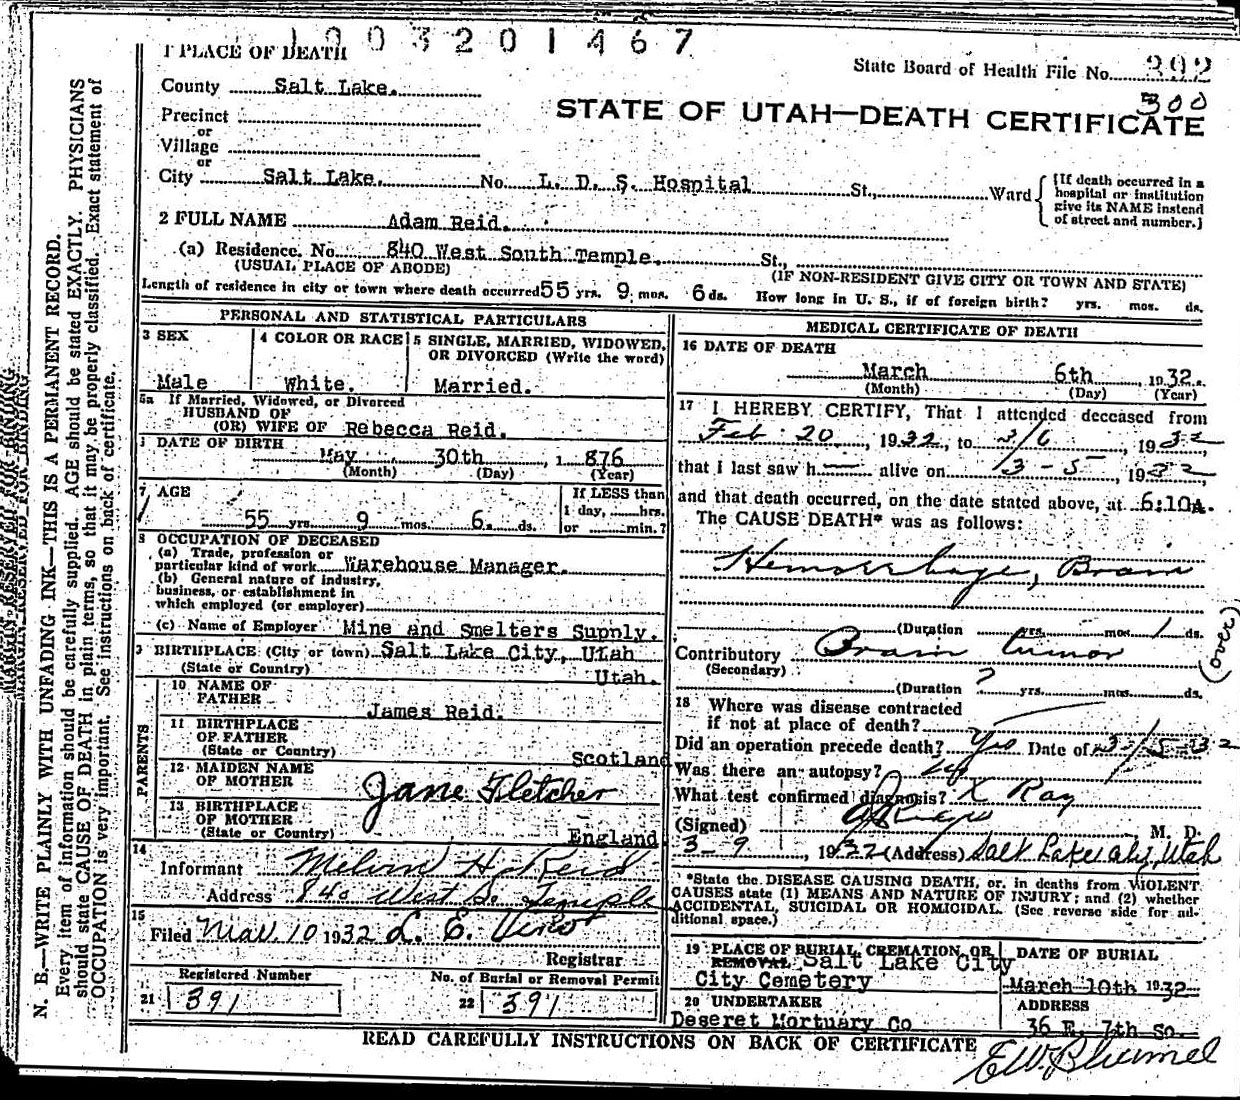 1003201467
1 PLACE OF DEATH
State Board of Health File No. 392
300
County Salt Lake.
STATE OF UTAH—DEATH CERTIFICATE
Precinct
or
Village
or
City Salt Lake. No. L. D. S. Hospital St., Ward
[If death occurred in a
hospital or institution
give its NAME instead
of street and number.]
2 FULL NAME Adam Reid.
(a) Residence. No. 840 West South Temple. St.,
(USUAL PLACE OF ABODE) (IF NON-RESIDENT GIVE CITY OR TOWN AND STATE)
Length of residence in city or town where death occurred 55 yrs. 9 mos. 6 ds. How long in U. S., if of foreign birth? yrs. mos. ds.
PERSONAL AND STATISTICAL PARTICULARS
3 SEX
Male
4 COLOR OR RACE
White.
5 SINGLE, MARRIED, WIDOWED,
OR DIVORCED (Write the word)
Married.
5a If Married, Widowed, or Divorced
HUSBAND OF
(OR) WIFE OF Rebecca Reid.
DATE OF BIRTH
May 30th, 1 876
(Month) (Day) (Year)
7 AGE
55 yrs. 9 mos. 6. ds.
If LESS than
1 day, hrs.
or min.?
8 OCCUPATION OF DECEASED
(a) Trade, profession or
particular kind of work Warehouse Manager.
(b) General nature of industry,
business, or establishment in
which employed (or employer)
(c) Name of Employer Mine and Smelters Supply.
9 BIRTHPLACE (City or town) Salt Lake City, Utah
(State or Country) Utah.
PARENTS
10 NAME OF
FATHER James Reid.
11 BIRTHPLACE
OF FATHER
(State or Country) Scotland
12 MAIDEN NAME
OF MOTHER Jane Fletcher
13 BIRTHPLACE
OF MOTHER
(State or Country) England.
14
Informant Melvin H. Reid
Address 840 West So. Temple
15
Filed Mar. 10 1932 L. E. Viko
Registrar
Registered Number
21 391
No. of Burial or Removal Permit
22 391
MEDICAL CERTIFICATE OF DEATH
16 DATE OF DEATH
March 6th, 1932.
(Month) (Day) (Year)
17 I HEREBY CERTIFY, That I attended deceased from
Feb. 20, 1932, to 3/6, 1932
that I last saw h alive on 3-5, 1932
and that death occurred, on the date stated above, at 6:10A.
The CAUSE DEATH* was as follows:
Hemorrhage, Brain
(Duration yrs. mos. 1 ds.
Contributory Brain tumor
(Secondary)
(Duration ? yrs. mos. ds.
(over)
18 Where was disease contracted
if not at place of death?
Did an operation precede death? Yes Date of 3/5-32
Was there an autopsy?
What test confirmed diagnosis? X Ray
(Signed) , M. D.
3-9, 1932 (Address) Salt Lake City, Utah
*State the DISEASE CAUSING DEATH, or, in deaths from VIOLENT
CAUSES state (1) MEANS AND NATURE OF INJURY; and (2) whether
ACCIDENTAL, SUICIDAL OR HOMICIDAL. (See reverse side for ad-
ditional space.)
19 PLACE OF BURIAL, CREMATION, OR
REMOVAL Salt Lake City
City Cemetery
DATE OF BURIAL
March 10th 1932
20 UNDERTAKER
Deseret Mortuary Co
ADDRESS
36 E. 7th So.
READ CAREFULLY INSTRUCTIONS ON BACK OF CERTIFICATE
E.W. Blumel
MARGIN RESERVED FOR BINDING
N. B.—WRITE PLAINLY WITH UNFADING INK—THIS IS A PERMANENT RECORD.
Every item of information should be carefully supplied. AGE should be stated EXACTLY. PHYSICIANS
should state CAUSE OF DEATH in plain terms, so that it may be properly classified. Exact statement of
OCCUPATION is very important. See instructions on back of certificate.